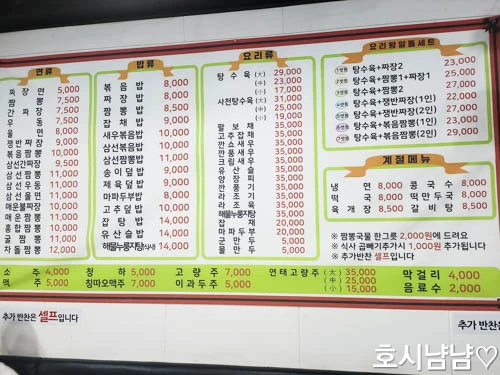 면류
짜장면 5,000
짬뽕 7,500
간짜장 7,500
우동 7,500
울면 8,000
쟁반짜장 9,000
볶음짬뽕 10,000
삼선간짜장 9,500
삼선짬뽕 11,000
삼선우동 11,000
삼선울면 11,000
매운불짜장
매운짬뽕
홍합짬뽕
굴짬뽕 11,000
차돌짬뽕 12,000
밥류
볶음밥 8,000
짜장밥 8,000
짬뽕밥 8,500
잡채밥 9,000
새우볶음밥 10,000
삼선볶음밥 11,000
삼선짬뽕밥 11,000
송이덮밥 12,000
제육덮밥 10,000
마파두부밥 10,000
고추덮밥 10,000
잡탕밥 14,000
유산슬밥 14,000
해물누룽지탕식새 14,000
요리류
탕수육 (大) 29,000
(中) 23,000
(小) 17,000
사천탕수육 (大) 31,000
(中) 25,000
(小) 19,000
팔보채 35,000
고추잡채
깐쇼새우
깐풍새우
크림새우
유산슬
양장피
깐풍기
라조기
라조육
해물누룽지탕
잡채
마파두부 20,000
군만두 5,000
물만두 5,000
요리왕알뜰세트
1셋트 탕수육+짜장2 23,000
2셋트 탕수육+짬뽕1+짜장1 25,000
3셋트 탕수육+짬뽕2 27,000
4셋트 탕수육+쟁반짜장(1인) 22,000
5셋트 탕수육+쟁반짜장(2인) 27,000
6셋트 탕수육+볶음짬뽕(1인) 23,000
7셋트 탕수육+볶음짬뽕(2인) 29,000
계절메뉴
냉면 8,000 콩국수 8,000
떡국 8,000 떡만두국 8,000
육개장 8,500 갈비탕 8,500
※ 짬뽕국물 한그릇 2,000원에 드려요
※ 식사 곱빼기추가시 1,000원 추가됩니다
※ 추가반찬 셀프입니다
소주 4,000 청하 5,000 고량주 7,000 연태고량주 (大) 35,000 막걸리 4,000
맥주 5,000 칭따오맥주 7,000 이과두주 5,000 (中) 25,000 음료수 2,000
(小) 15,000
추가 반찬은 셀프입니다
추가 반찬은
호시냠냠♡